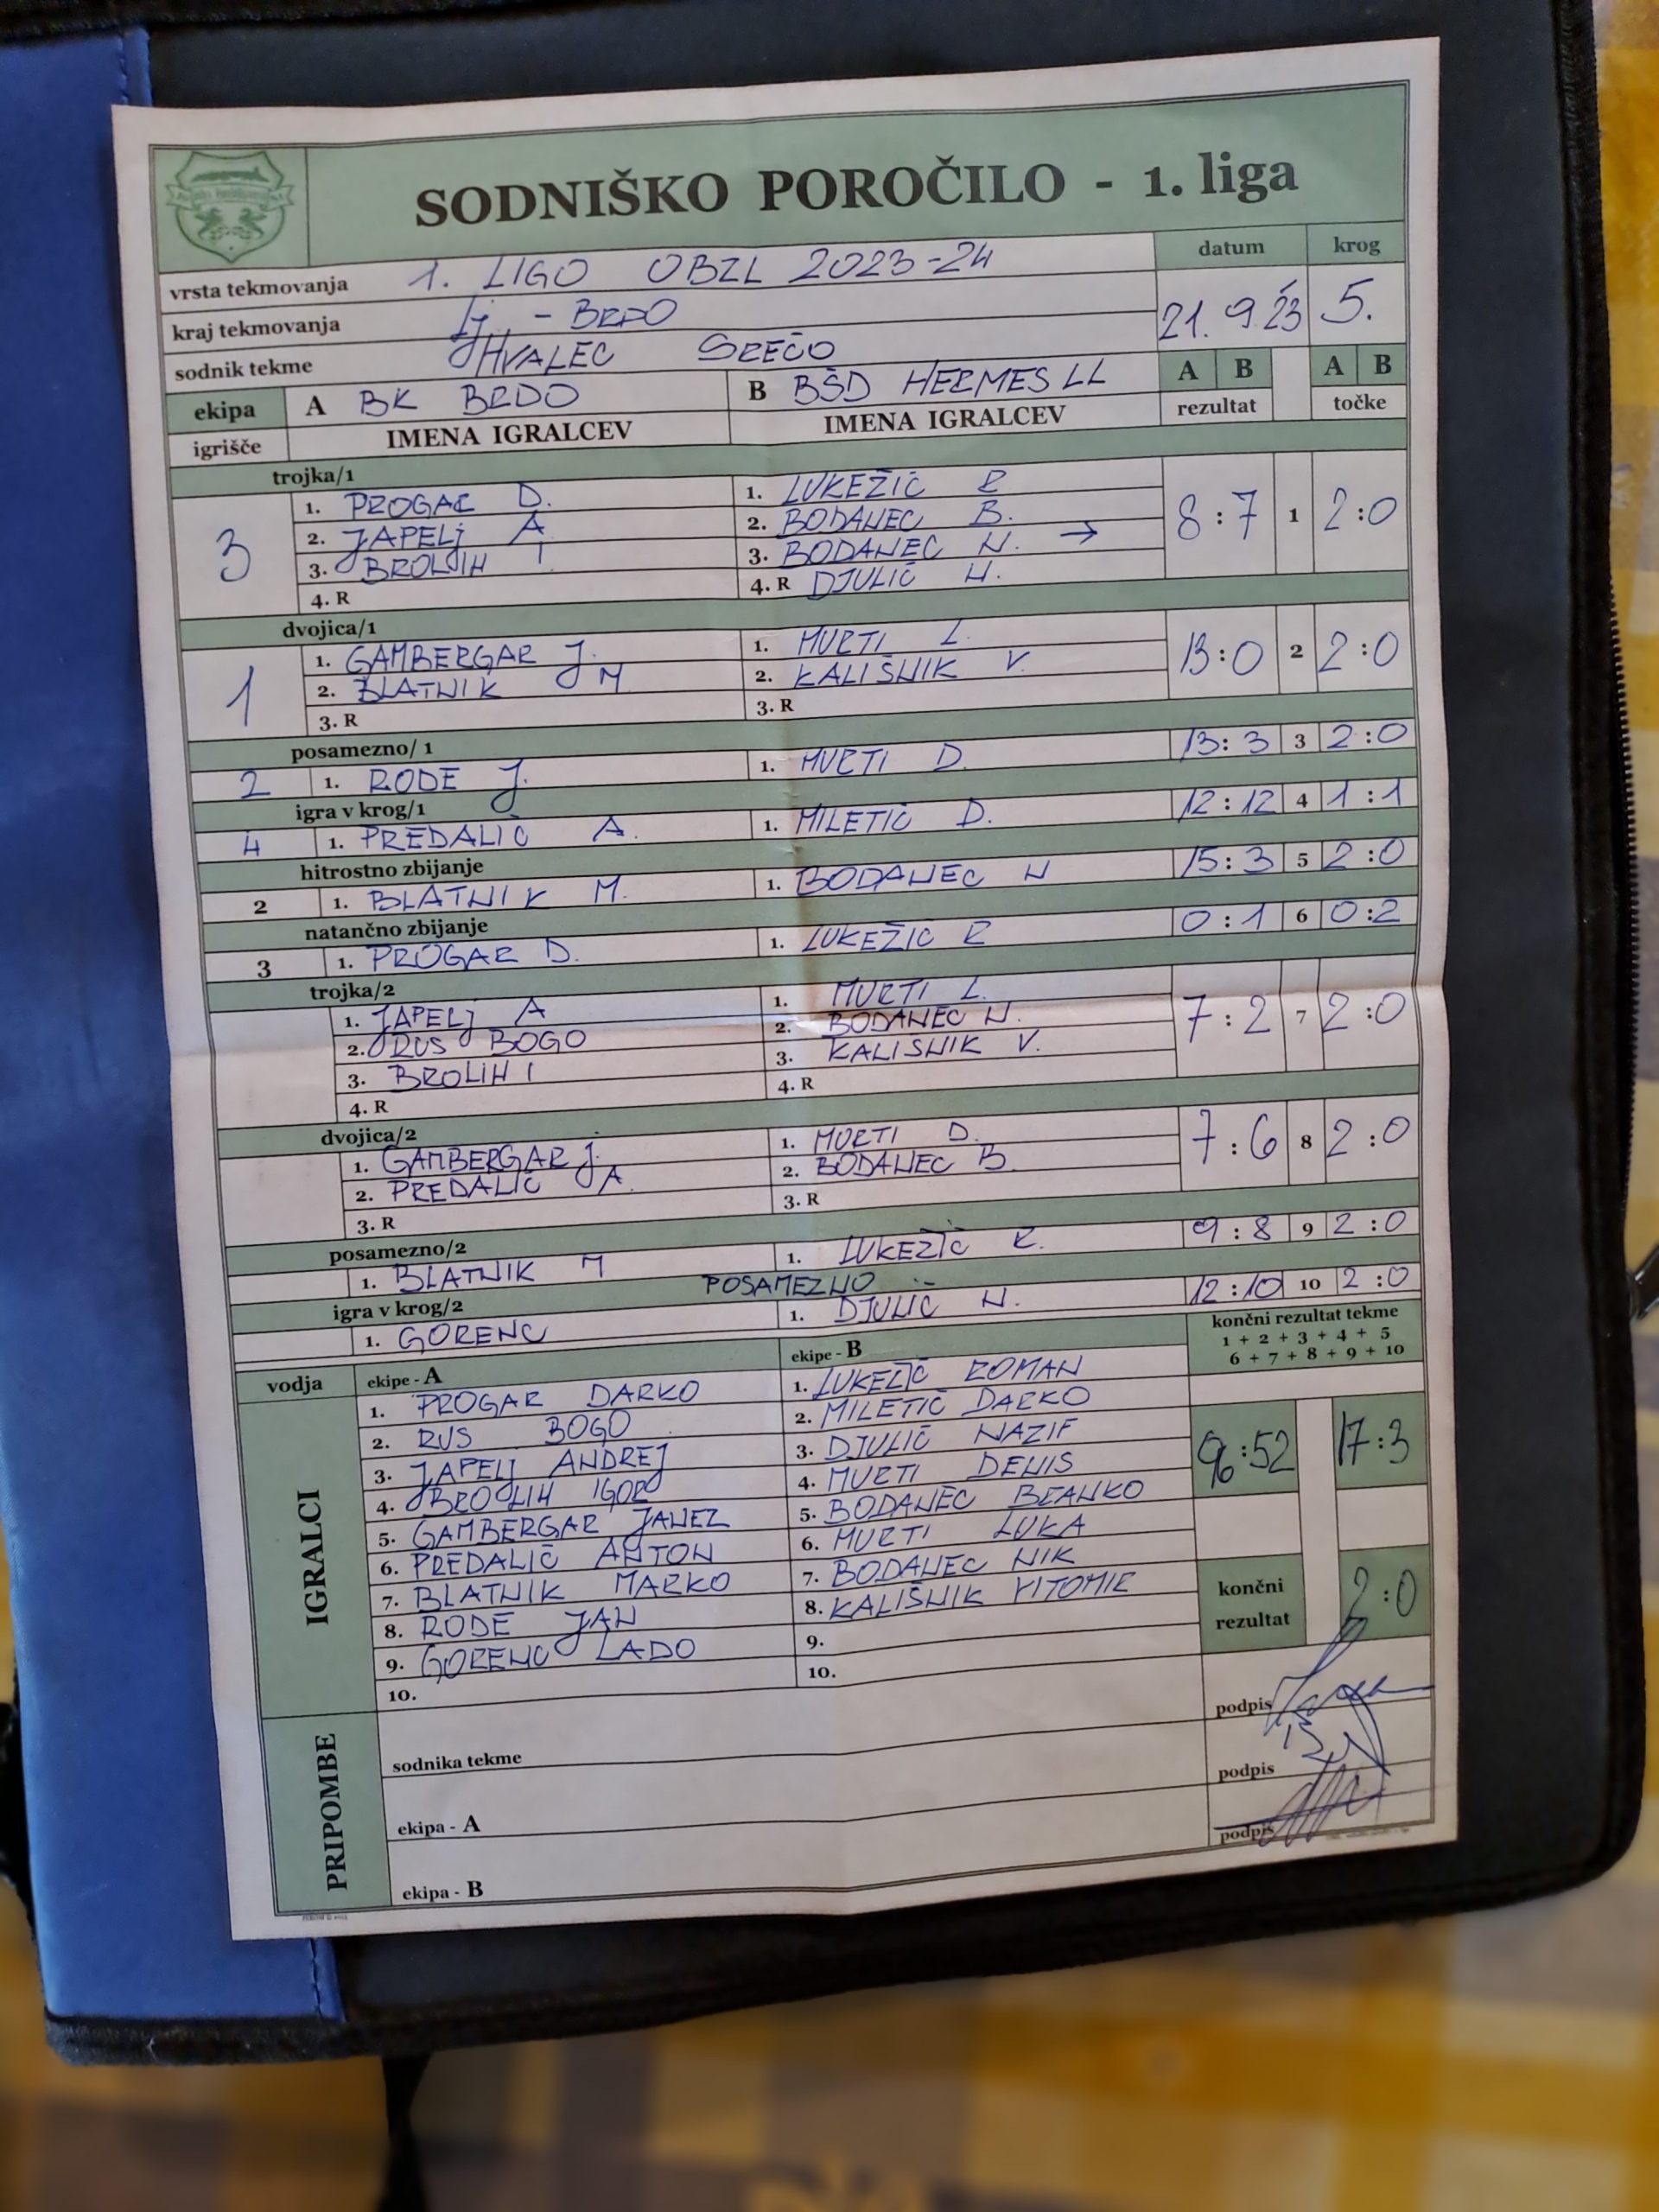 SODNIŠKO POROČILO - 1. liga
vrsta tekmovanja 1. LIGO OBZL 2023-24 datum krog
kraj tekmovanja Lj. - BRDO 21. 9. 23 5.
sodnik tekme HVALEC SREČO
ekipa A BK BRDO B BŠD HERMES LL A B A B
igrišče IMENA IGRALCEV IMENA IGRALCEV rezultat točke
trojka/1
3 1. PROGAR D. 1. LUKEŽIČ R 8 : 7 1 2 : 0
2. JAPELJ A 2. BODANEC B.
3. BROLIH I 3. BODANEC N. →
4. R 4. R DJULIČ N.
dvojica/1
1 1. GAMBERGAR J. 1. MURTI L. 13 : 0 2 2 : 0
2. BLATNIK M 2. KALIŠNIK V.
3. R 3. R
posamezno/ 1
2 1. RODE J. 1. MURTI D. 13 : 3 3 2 : 0
igra v krog/1
4 1. PREDALIČ A. 1. MILETIČ D. 12 : 12 4 1 : 1
hitrostno zbijanje
2 1. BLATNIK M. 1. BODANEC N 15 : 3 5 2 : 0
natančno zbijanje
3 1. PROGAR D. 1. LUKEŽIČ R 0 : 1 6 0 : 2
trojka/2
1. JAPELJ A 1. MURTI L. 7 : 2 7 2 : 0
2. RUS BOGO 2. BODANEC N.
3. BROLIH I 3. KALIŠNIK V.
4. R 4. R
dvojica/2
1. GAMBERGAR J. 1. MURTI D. 7 : 6 8 2 : 0
2. PREDALIČ A. 2. BODANEC B.
3. R 3. R
posamezno/2
1. BLATNIK M 1. LUKEŽIČ R. 9 : 8 9 2 : 0
igra v krog/2 POSAMEZNO
1. GORENC 1. DJULIČ N. 12 : 10 10 2 : 0
vodja ekipe - A ekipe - B končni rezultat tekme
1 + 2 + 3 + 4 + 5
6 + 7 + 8 + 9 + 10
IGRALCI
1. PROGAR DARKO 1. LUKEŽIČ ROMAN
2. RUS BOGO 2. MILETIČ DARKO
3. JAPELJ ANDREJ 3. DJULIČ NAZIF 96 : 52 17 : 3
4. BROLIH IGOR 4. MURTI DENIS
5. GAMBERGAR JANEZ 5. BODANEC BRANKO
6. PREDALIČ ANTON 6. MURTI LUKA
7. BLATNIK MARKO 7. BODANEC NIK
8. RODE JAN 8. KALIŠNIK VITOMIR končni rezultat 2 : 0
9. GORENC LADO 9.
10. 10.
PRIPOMBE
sodnika tekme podpis
ekipa - A podpis
ekipa - B podpis